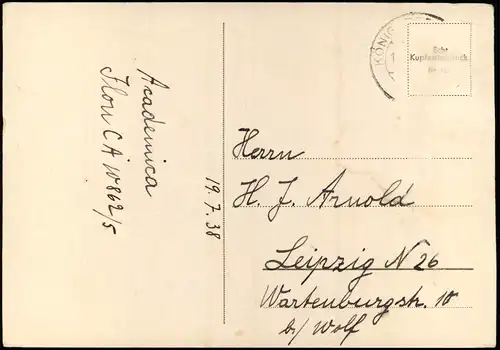 Academica
CA W862/5
19.7.38
KÖNIG
Echt
Kupfertiefdruck
Herrn
H. J. Arnold
Leipzig N 26
Wartenburgstr. 10
b/ Wolf